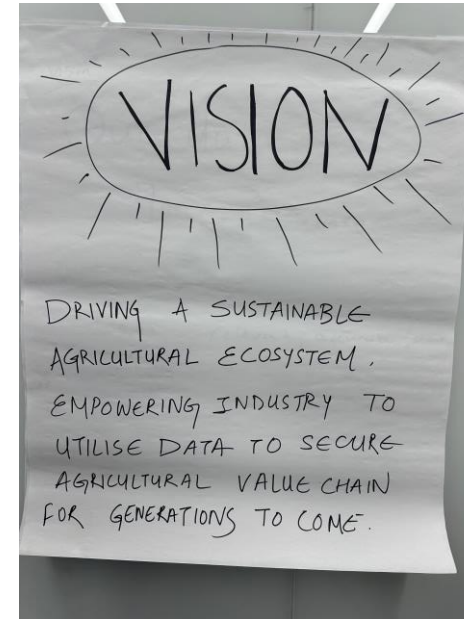 VISION
DRIVING A SUSTAINABLE
AGRICULTURAL ECOSYSTEM.
EMPOWERING INDUSTRY TO
UTILISE DATA TO SECURE
AGRICULTURAL VALUE CHAIN
FOR GENERATIONS TO COME.